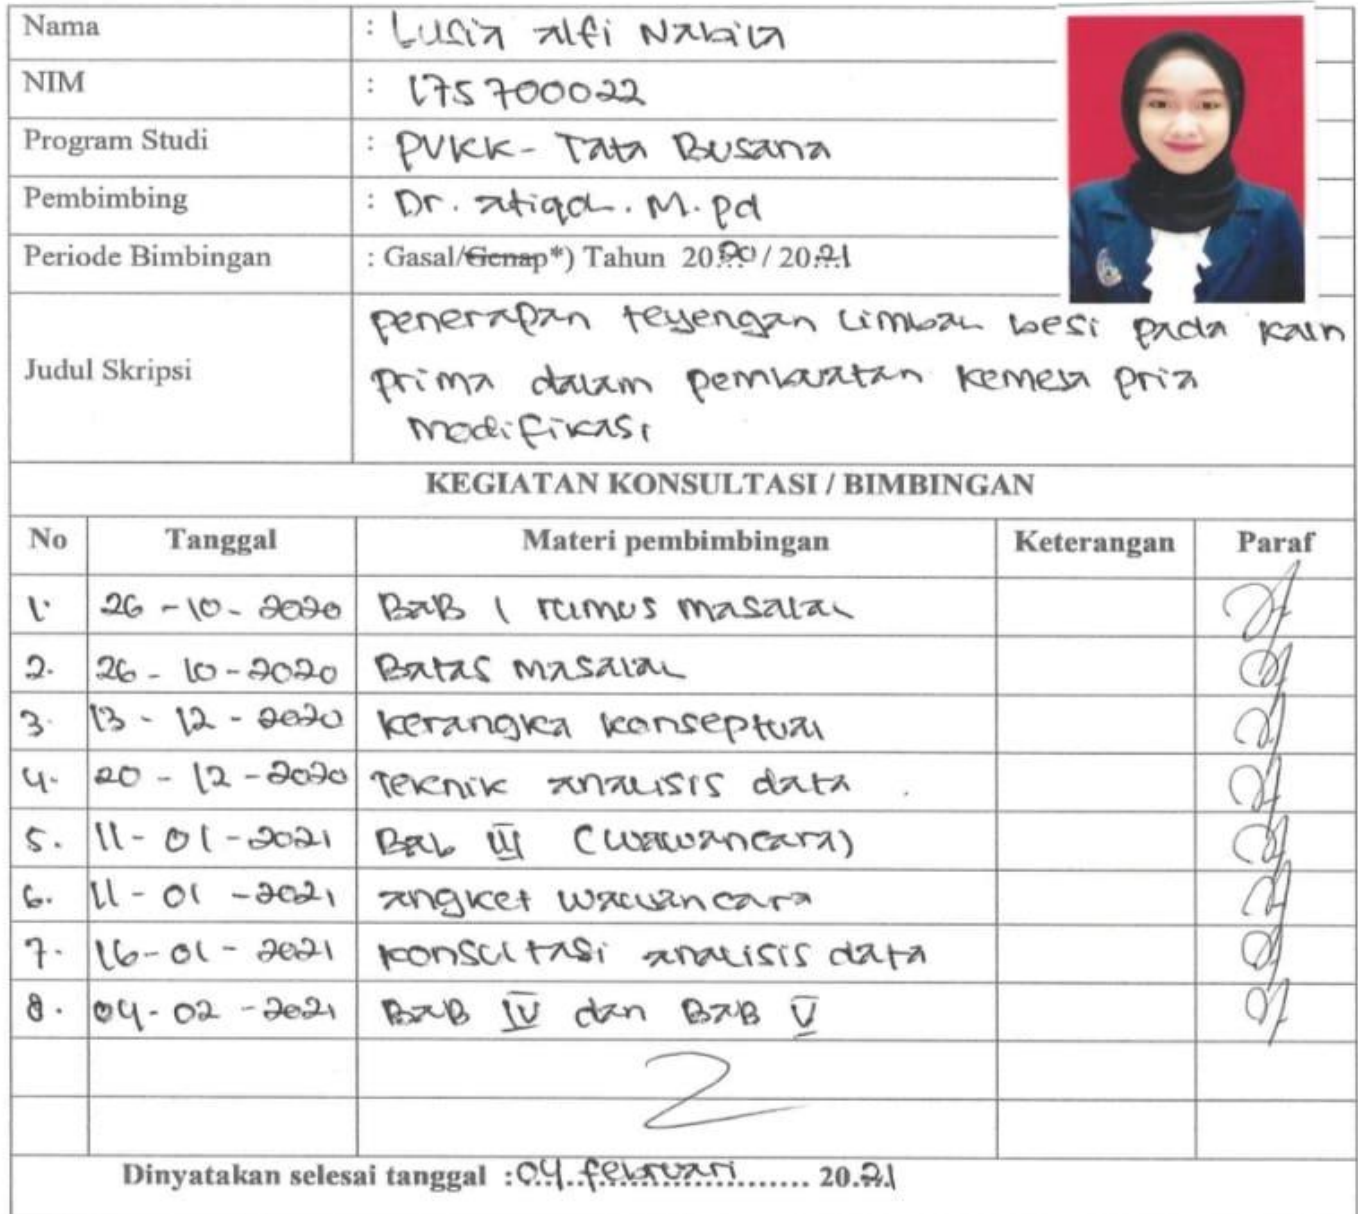 Nama : Lusia alfi Nabila
NIM : 175700022
Program Studi : PVKK - Tata Busana
Pembimbing : Dr. atiqah. M.pd
Periode Bimbingan : Gasal/Genap*) Tahun 2020 / 2021
Judul Skripsi
penerapan teyengan limbah besi pada kain
prima dalam pembuatan kemeja pria
modifikasi
KEGIATAN KONSULTASI / BIMBINGAN
No Tanggal Materi pembimbingan Keterangan Paraf
1. 26 - 10 - 2020 BAB I rumus masalah
2. 26 - 10 - 2020 Batas masalah
3. 13 - 12 - 2020 kerangka konseptual
4. 20 - 12 - 2020 Teknik analisis data .
5. 11 - 01 - 2021 Bab III (wawancara)
6. 11 - 01 - 2021 angket wawancara
7. 16 - 01 - 2021 konsultasi analisis data
8. 04 - 02 - 2021 BAB IV dan BAB V
Dinyatakan selesai tanggal : 04 februari 2021